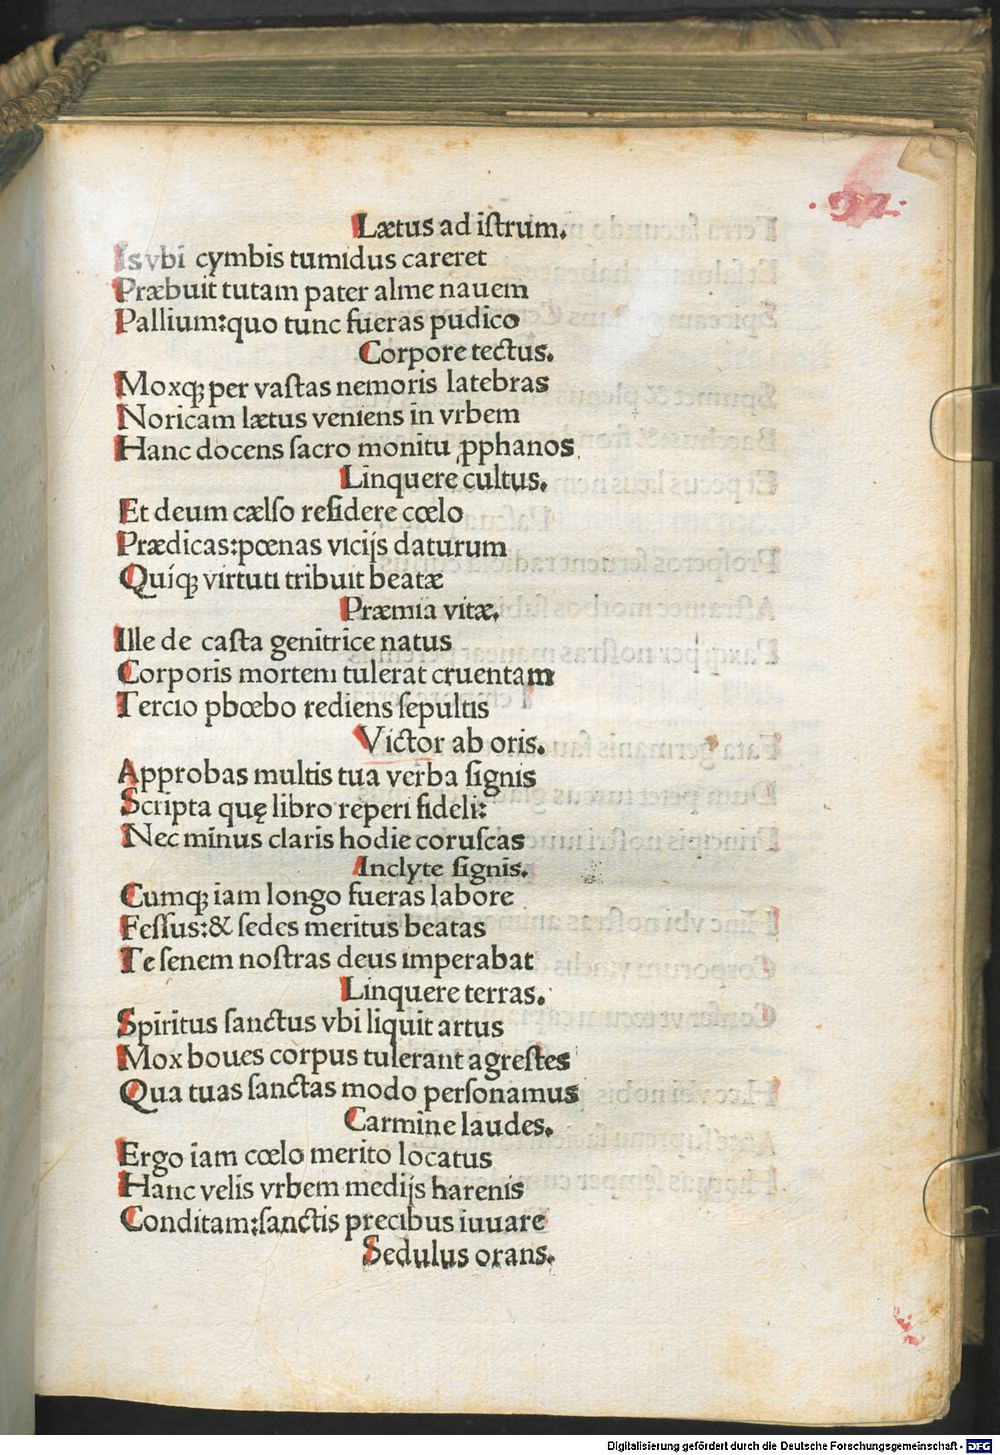 Lætus ad istrum.
Is vbi cymbis tumidus careret
Præbuit tutam pater alme nauem
Pallium:quo tunc fueras pudico
Corpore tectus.
Moxqꝫ per vastas nemoris latebras
Noricam lætus veniens in vrbem
Hanc docens sacro monitu ꝓphanos
Linquere cultus.
Et deum cælso residere cœlo
Prædicas:pœnas vicijs daturum
Quiqꝫ virtuti tribuit beatæ
Præmia vitæ.
Ille de casta genitrice natus
Corporis mortem tulerat cruentam
Tercio phœbo rediens sepultis
Victor ab oris.
Approbas multis tua verba signis
Scripta quę libro reperi fideli:
Nec minus claris hodie coruscas
Inclyte signis.
Cumqꝫ iam longo fueras labore
Fessus:& sedes meritus beatas
Te senem nostras deus imperabat
Linquere terras.
Spiritus sanctus vbi liquit artus
Mox boues corpus tulerant agrestes
Qua tuas sanctas modo personamus
Carmine laudes.
Ergo iam cœlo merito locatus
Hanc velis vrbem medijs harenis
Conditam:sanctis precibus iuuare
Sedulus orans.
Digitalisierung gefördert durch die Deutsche Forschungsgemeinschaft - DFG